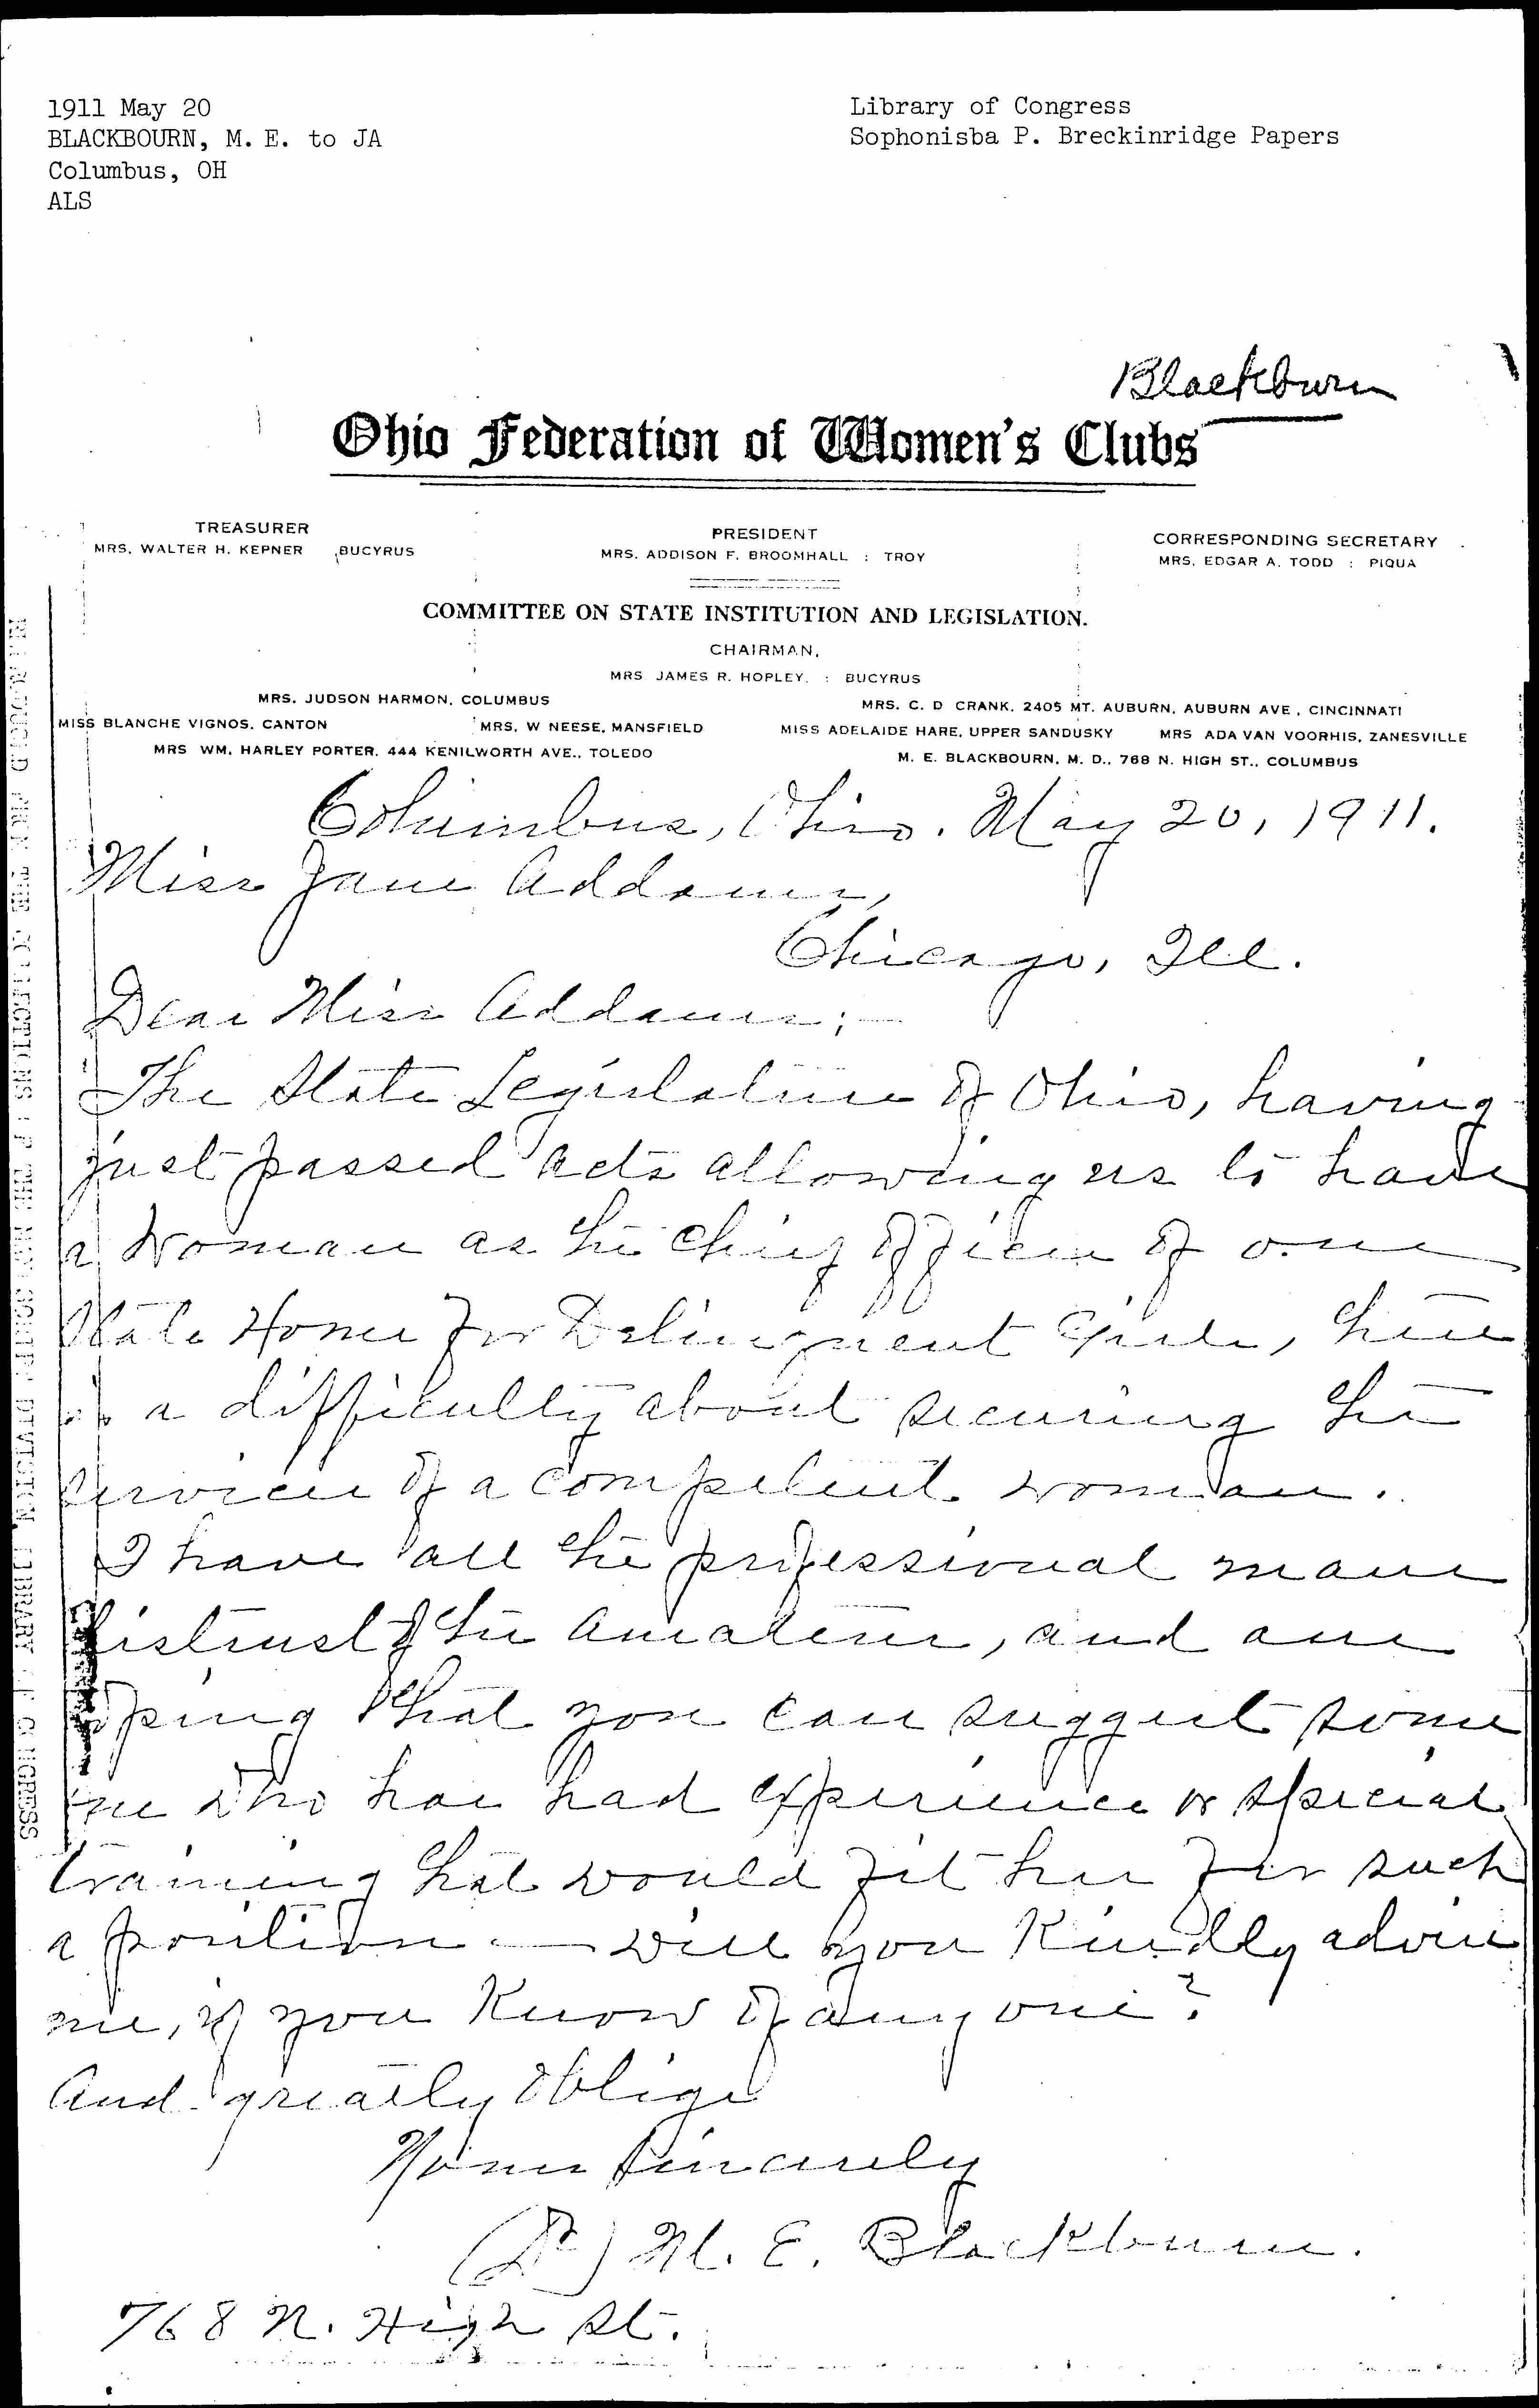 1911 May 20
BLACKBOURN, M. E. to JA
Columbus, OH
ALS
Library of Congress
Sophonisba P. Breckinridge Papers
Blackburn
Ohio Federation of Women's Clubs
TREASURER
MRS. WALTER H. KEPNER BUCYRUS
PRESIDENT
MRS. ADDISON F. BROOMHALL : TROY
CORRESPONDING SECRETARY
MRS. EDGAR A. TODD : PIQUA
COMMITTEE ON STATE INSTITUTION AND LEGISLATION.
CHAIRMAN,
MRS JAMES R. HOPLEY, : BUCYRUS
MRS. JUDSON HARMON, COLUMBUS
MRS. C. D CRANK, 2405 MT. AUBURN, AUBURN AVE, CINCINNATI
MISS BLANCHE VIGNOS, CANTON
MRS. W NEESE, MANSFIELD
MISS ADELAIDE HARE, UPPER SANDUSKY
MRS ADA VAN VOORHIS, ZANESVILLE
MRS WM. HARLEY PORTER, 444 KENILWORTH AVE., TOLEDO
M. E. BLACKBOURN, M. D., 768 N. HIGH ST., COLUMBUS
Columbus, Ohio. May 20, 1911.
Miss Jane Addams,
Chicago, Ill.
Dear Miss Addams;—
The State Legislature of Ohio, having
just passed acts allowing us to have
a woman as the chief officer of our
State Home for Delinquent Girls, there
is a difficulty about securing the
services of a competent woman.
I have all the professional mans
distrust of the amateur, and am
hoping that you can suggest some
one who has had experience or special
training that would fit her for such
a position — will you kindly advise
me, if you know of any one?
And greatly oblige
Yours sincerely
(Dr) M. E. Blackburn.
768 N. High St.